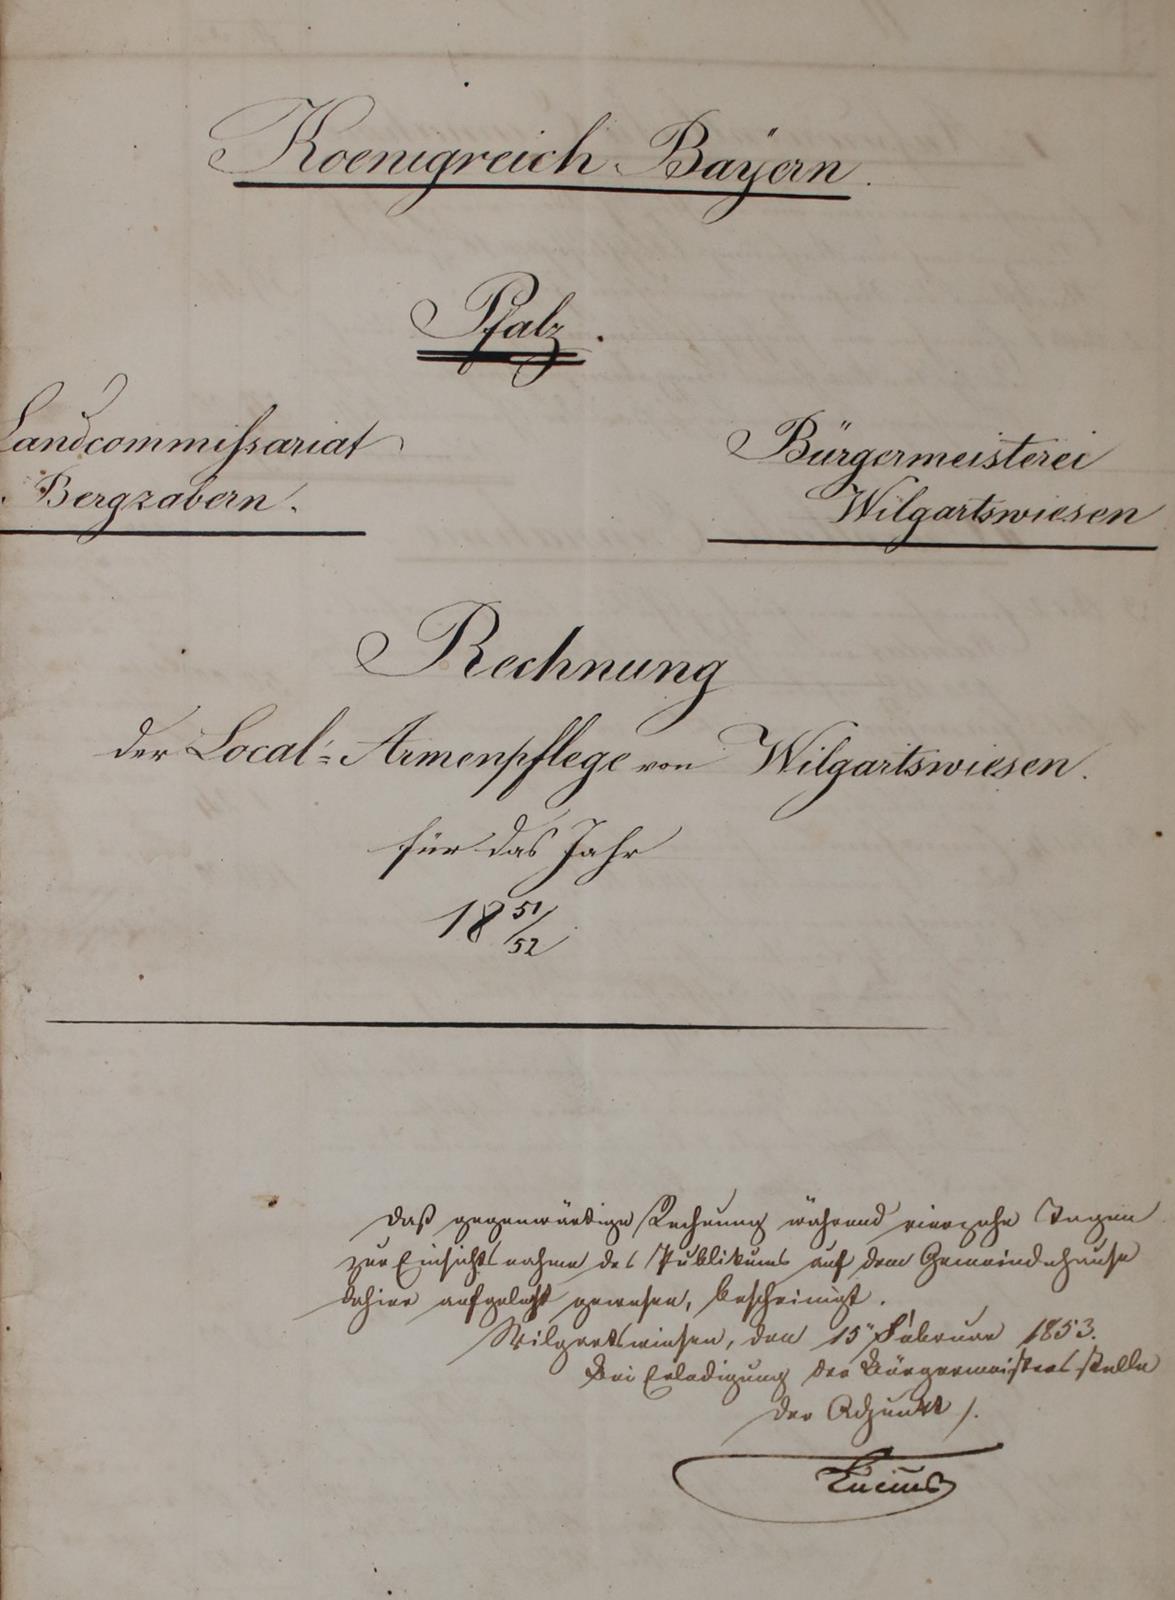 Koenigreich Bayern.
Pfalz.
Landcommissariat
Bergzabern.
Bürgermeisterei
Wilgartswiesen
Rechnung
der Local-Armenpflege von Wilgartswiesen.
für das Jahr
18 51/52
Daß gegenwärtige Rechnung während vierzehn Tagen
zur Einsichtsnahme des Publikums auf dem Gemeindehause
dahier aufgelegt gewesen, bescheinigt.
Wilgartswiesen, den 15 Februar 1853.
Bei Erledigung der Bürgermeistersstelle
Der Adjunkt /.
Lucius